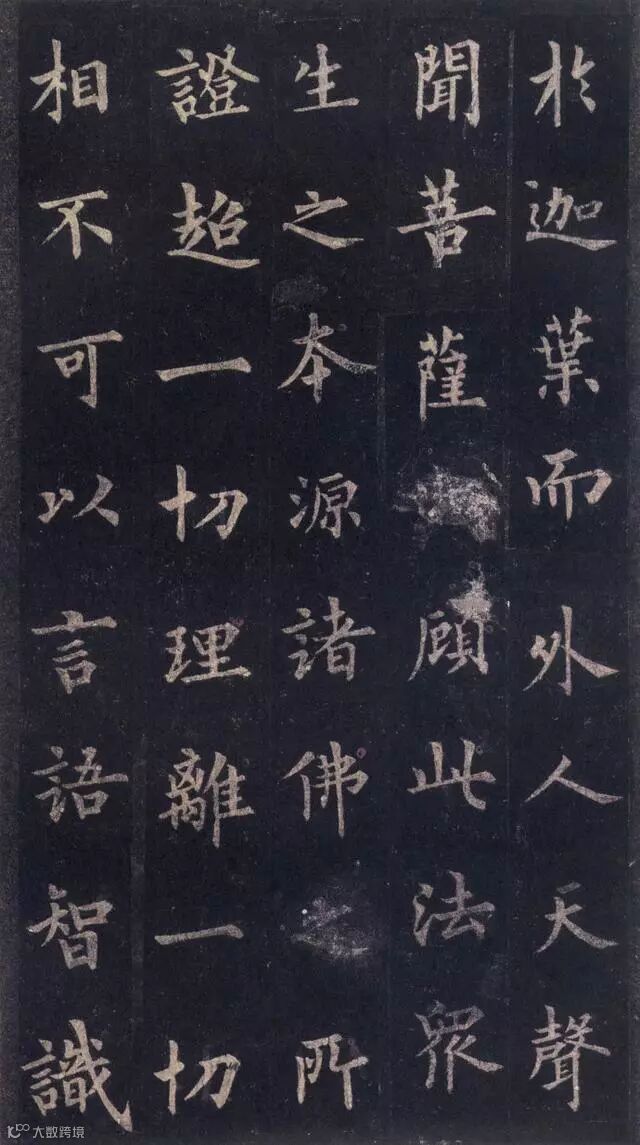 於迦葉而外人天聲
聞菩薩顧此法眾
生之本源諸佛之所
證超一切理離一切
相不可以言語智識
大数跨境